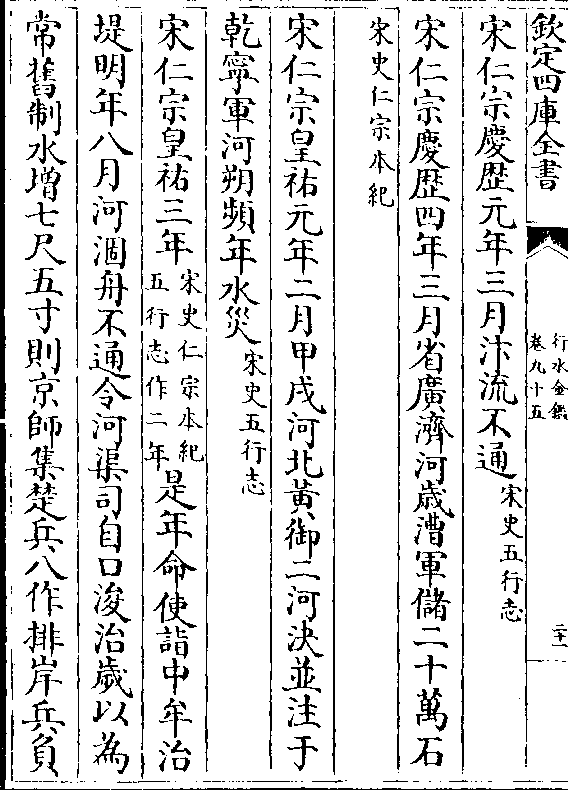 欽定四庫全書
行水金鑑
卷九十五
二十一
宋仁宗慶歴元年三月汴流不通宋史五行志
宋仁宗慶歴四年三月省廣濟河歳漕軍儲二十萬石
宋史仁宗本紀
宋仁宗皇祐元年二月甲戌河北黃御二河決並注于
乾寧軍河朔頻年水災宋史五行志
宋仁宗皇祐三年宋史仁宗本紀五行志作二年是年命使詣中牟治
堤明年八月河涸舟不通令河渠司自口浚治歳以為
常舊制水增七尺五寸則京師集楚兵八作排岸兵負